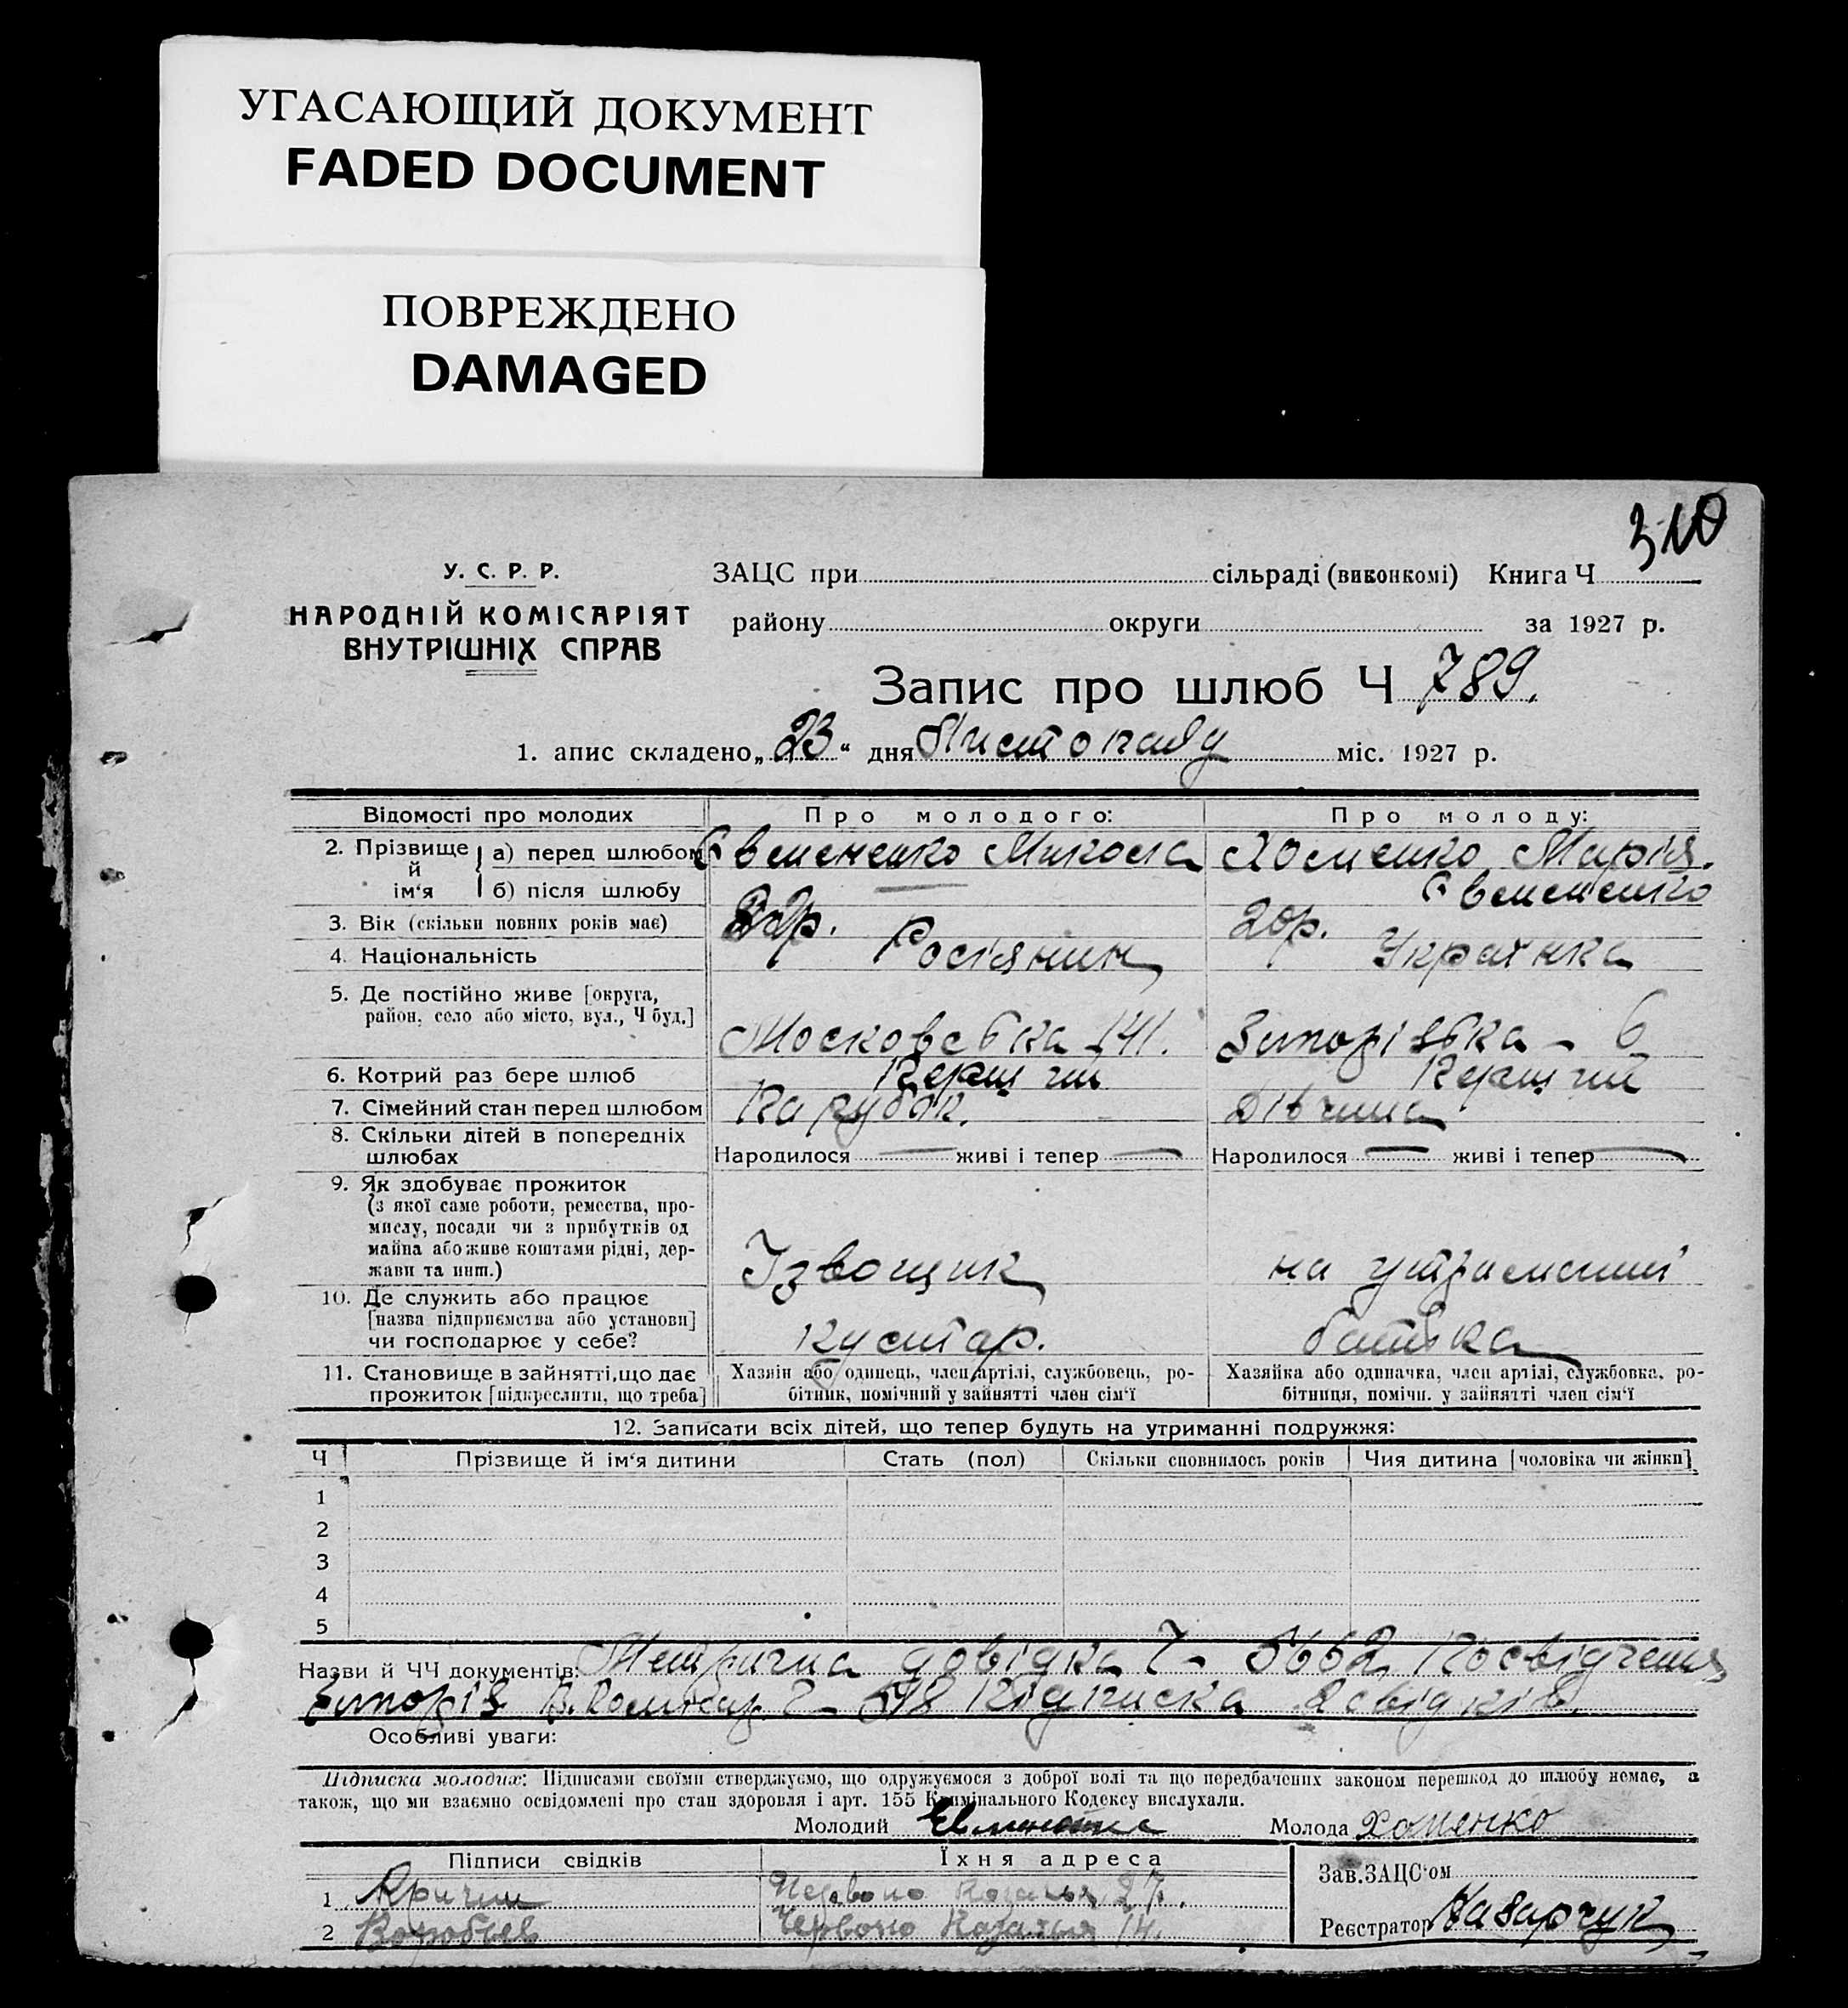 УГАСАЮЩИЙ ДОКУМЕНТ
FADED DOCUMENT
ПОВРЕЖДЕНО
DAMAGED
310
У. С. Р. Р.
НАРОДНІЙ КОМІСАРІЯТ
ВНУТРІШНІХ СПРАВ
ЗАЦС при сільраді (виконкомі) Книга Ч
району округи за 1927 р.
Запис про шлюб Ч 789.
1. апис складено „23“ дня Листопаду міс. 1927 р.
Відомості про молодих Про молодого: Про молоду:
2. Прізвище й ім'я
а) перед шлюбом Микола Хоменко Марія.
б) після шлюбу —
3. Вік (скільки повних років має) 20р.
4. Національність Росіянин Українка
5. Де постійно живе [округа,
район, село або місто, вул., Ч буд.] Московська 141. 6
6. Котрий раз бере шлюб Перший Перший
7. Сімейний стан перед шлюбом Парубок. Дівчина
8. Скільки дітей в попередніх
шлюбах Народилося — живі і тепер — Народилося — живі і тепер —
9. Як здобуває прожиток
(з якої саме роботи, ремества, про-
мислу, посади чи з прибутків од
майна або живе коштами рідні, дер-
жави та инш.) Ізвощик на утриманні
10. Де служить або працює
[назва підприємства або установи]
чи господарює у себе? кустар. батька
11. Становище в зайнятті, що дає
прожиток [підкреслити, що треба]
Хазяїн або одинець, член артілі, службовець, ро-
бітник, помічний у зайнятті член сім'ї
Хазяйка або одиначка, член артілі, службовка, ро-
бітниця, помічн. у зайнятті член сім'ї
12. Записати всіх дітей, що тепер будуть на утриманні подружжя:
Ч Прізвище й ім'я дитини Стать (пол) Скільки сповнилось років Чия дитина [чоловіка чи жінки]
1
2
3
4
5
Назви й ЧЧ документів: Метрична довідка Ч- 5662 Посвідчення
Підписка 2 свідків.
Особливі уваги:
Підписка молодих: Підписами своїми стверджуємо, що одружуємося з доброї волі та що передбачених законом перешкод до шлюбу немає, а
також, що ми взаємно освідомлені про стан здоровля і арт. 155 Кримінального Кодексу вислухали.
Молодий Молода Хоменко
Підписи свідків Їхня адреса Зав. ЗАЦС'ом
1 27.
2 Воробьев Червоно Казачья 14. Реєстратор Назарчук